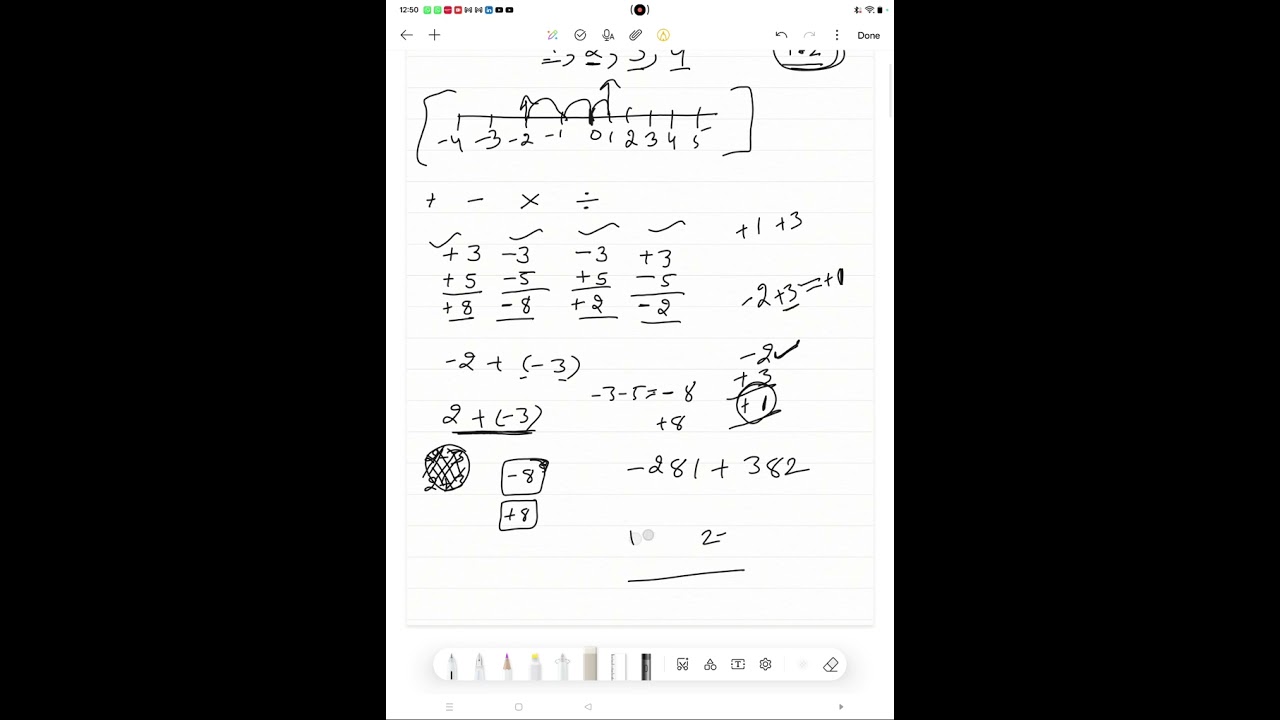 12:50
Done
2, 3, 4
-4 -3 -2 -1 0 1 2 3 4 5
+ - × ÷
+3 -3 -3 +3
+5 -5 +5 -5
+8 -8 +2 -2
+1 +3
-2+3=+1
-2 + (-3)
-2
+3
+1
-3-5=-8
+8
2 + (-3)
-281 + 382
-8
+8
1 2